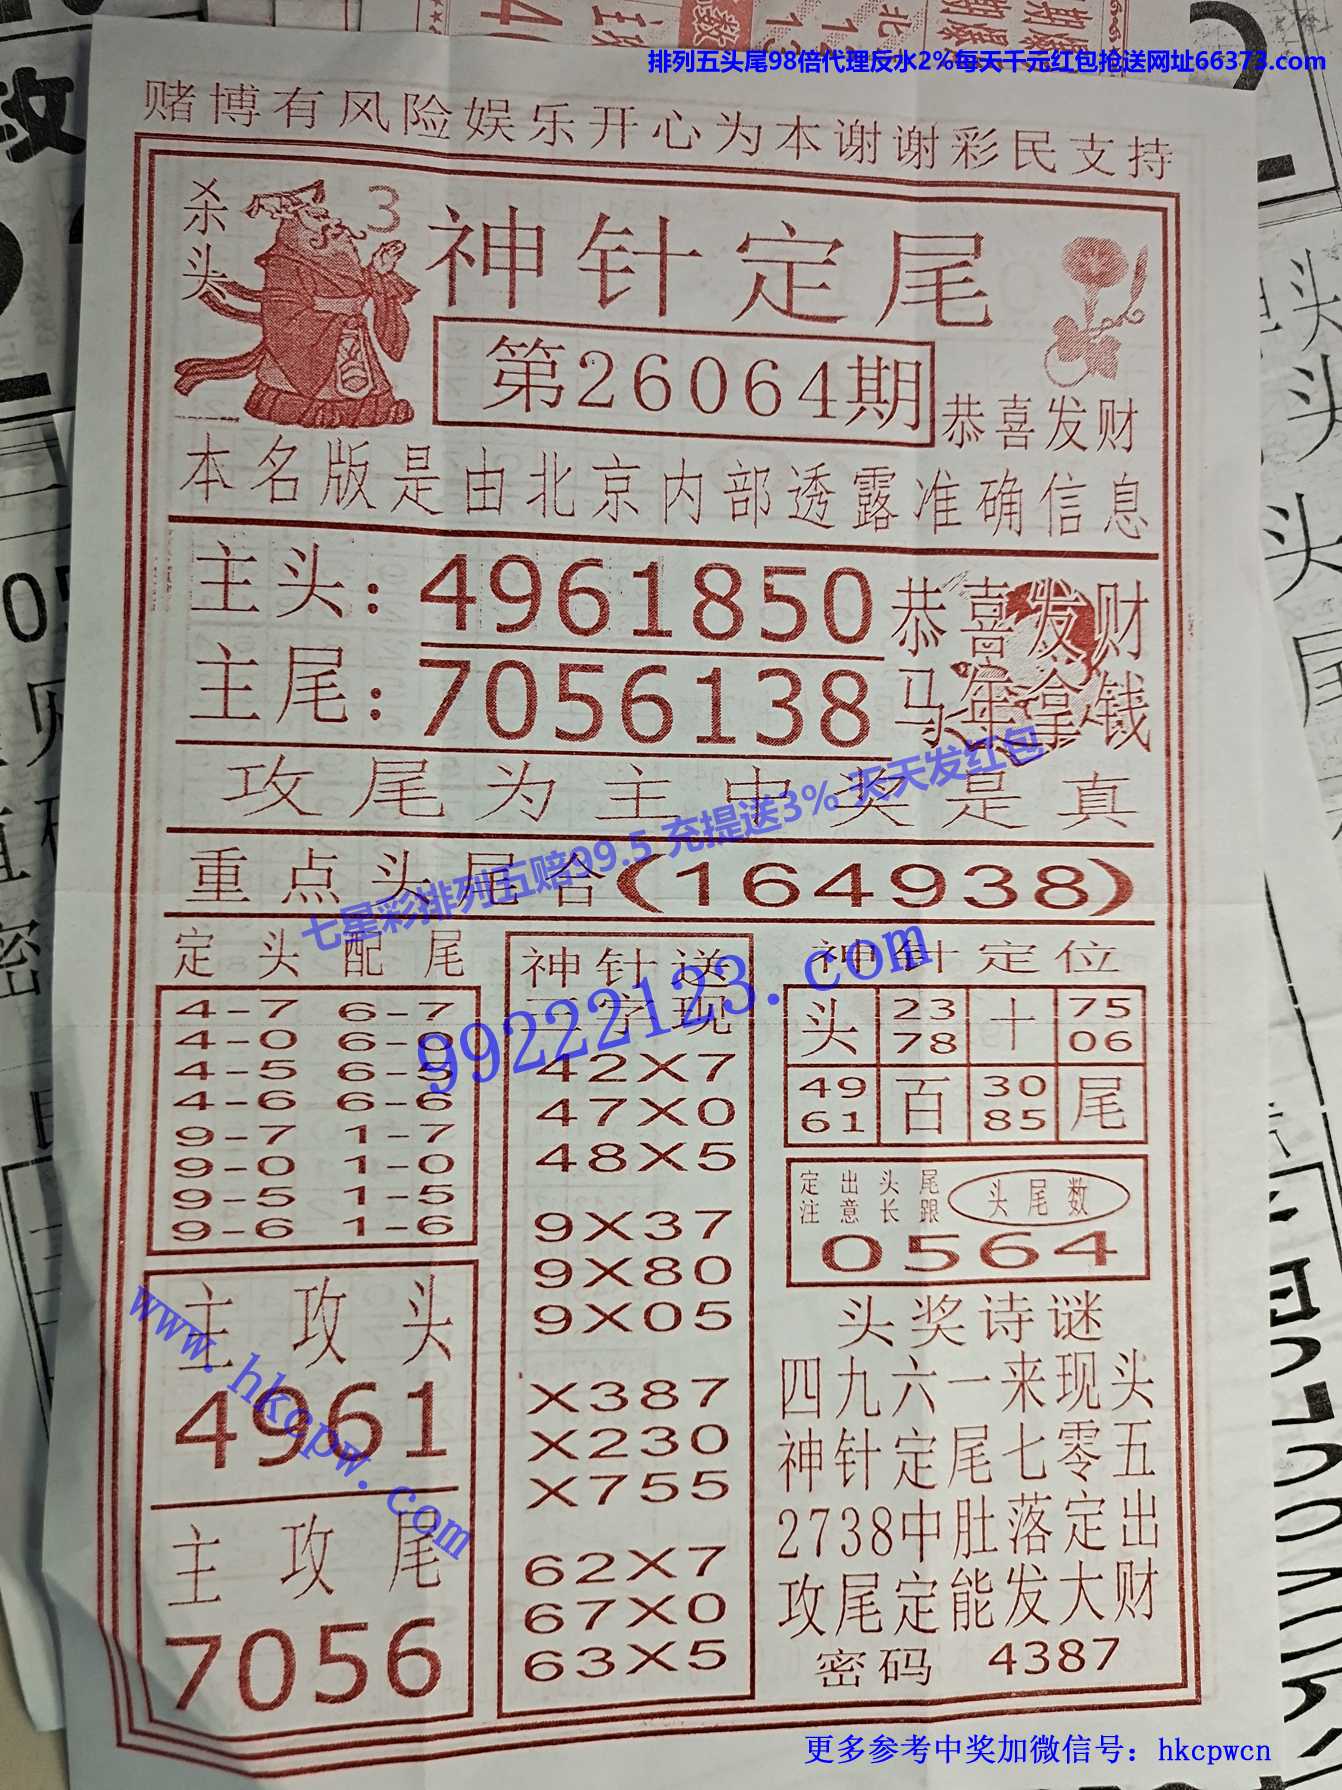 排列五头尾98倍代理反水2%每天千元红包抢送网址66373.com
赌博有风险娱乐开心为本谢谢彩民支持
杀头
3
神针定尾
第26064期
恭喜发财
本名版是由北京内部透露准确信息
主头：4961850
恭喜发财
主尾：7056138
马年拿钱
攻尾为主中奖是真
七星彩排列五赔99.5 充提送3% 天天发红包
重点头尾合(164938)
定头配尾
4-7 6-7
4-0 6-0
4-5 6-5
4-6 6-6
9-7 1-7
9-0 1-0
9-5 1-5
9-6 1-6
主攻头
4961
主攻尾
7056
www.hkcpw.com
神针送
三字现
99222123.com
42X7
47X0
48X5
9X37
9X80
9X05
X387
X230
X755
62X7
67X0
63X5
神针定位
头 2378 十 7506
4961 百 3085 尾
定出头尾
注意长跟
头尾数
0564
头奖诗谜
四九六一来现头
神针定尾七零五
2738中肚落定出
攻尾定能发大财
密码 4387
更多参考中奖加微信号：hkcpwcn